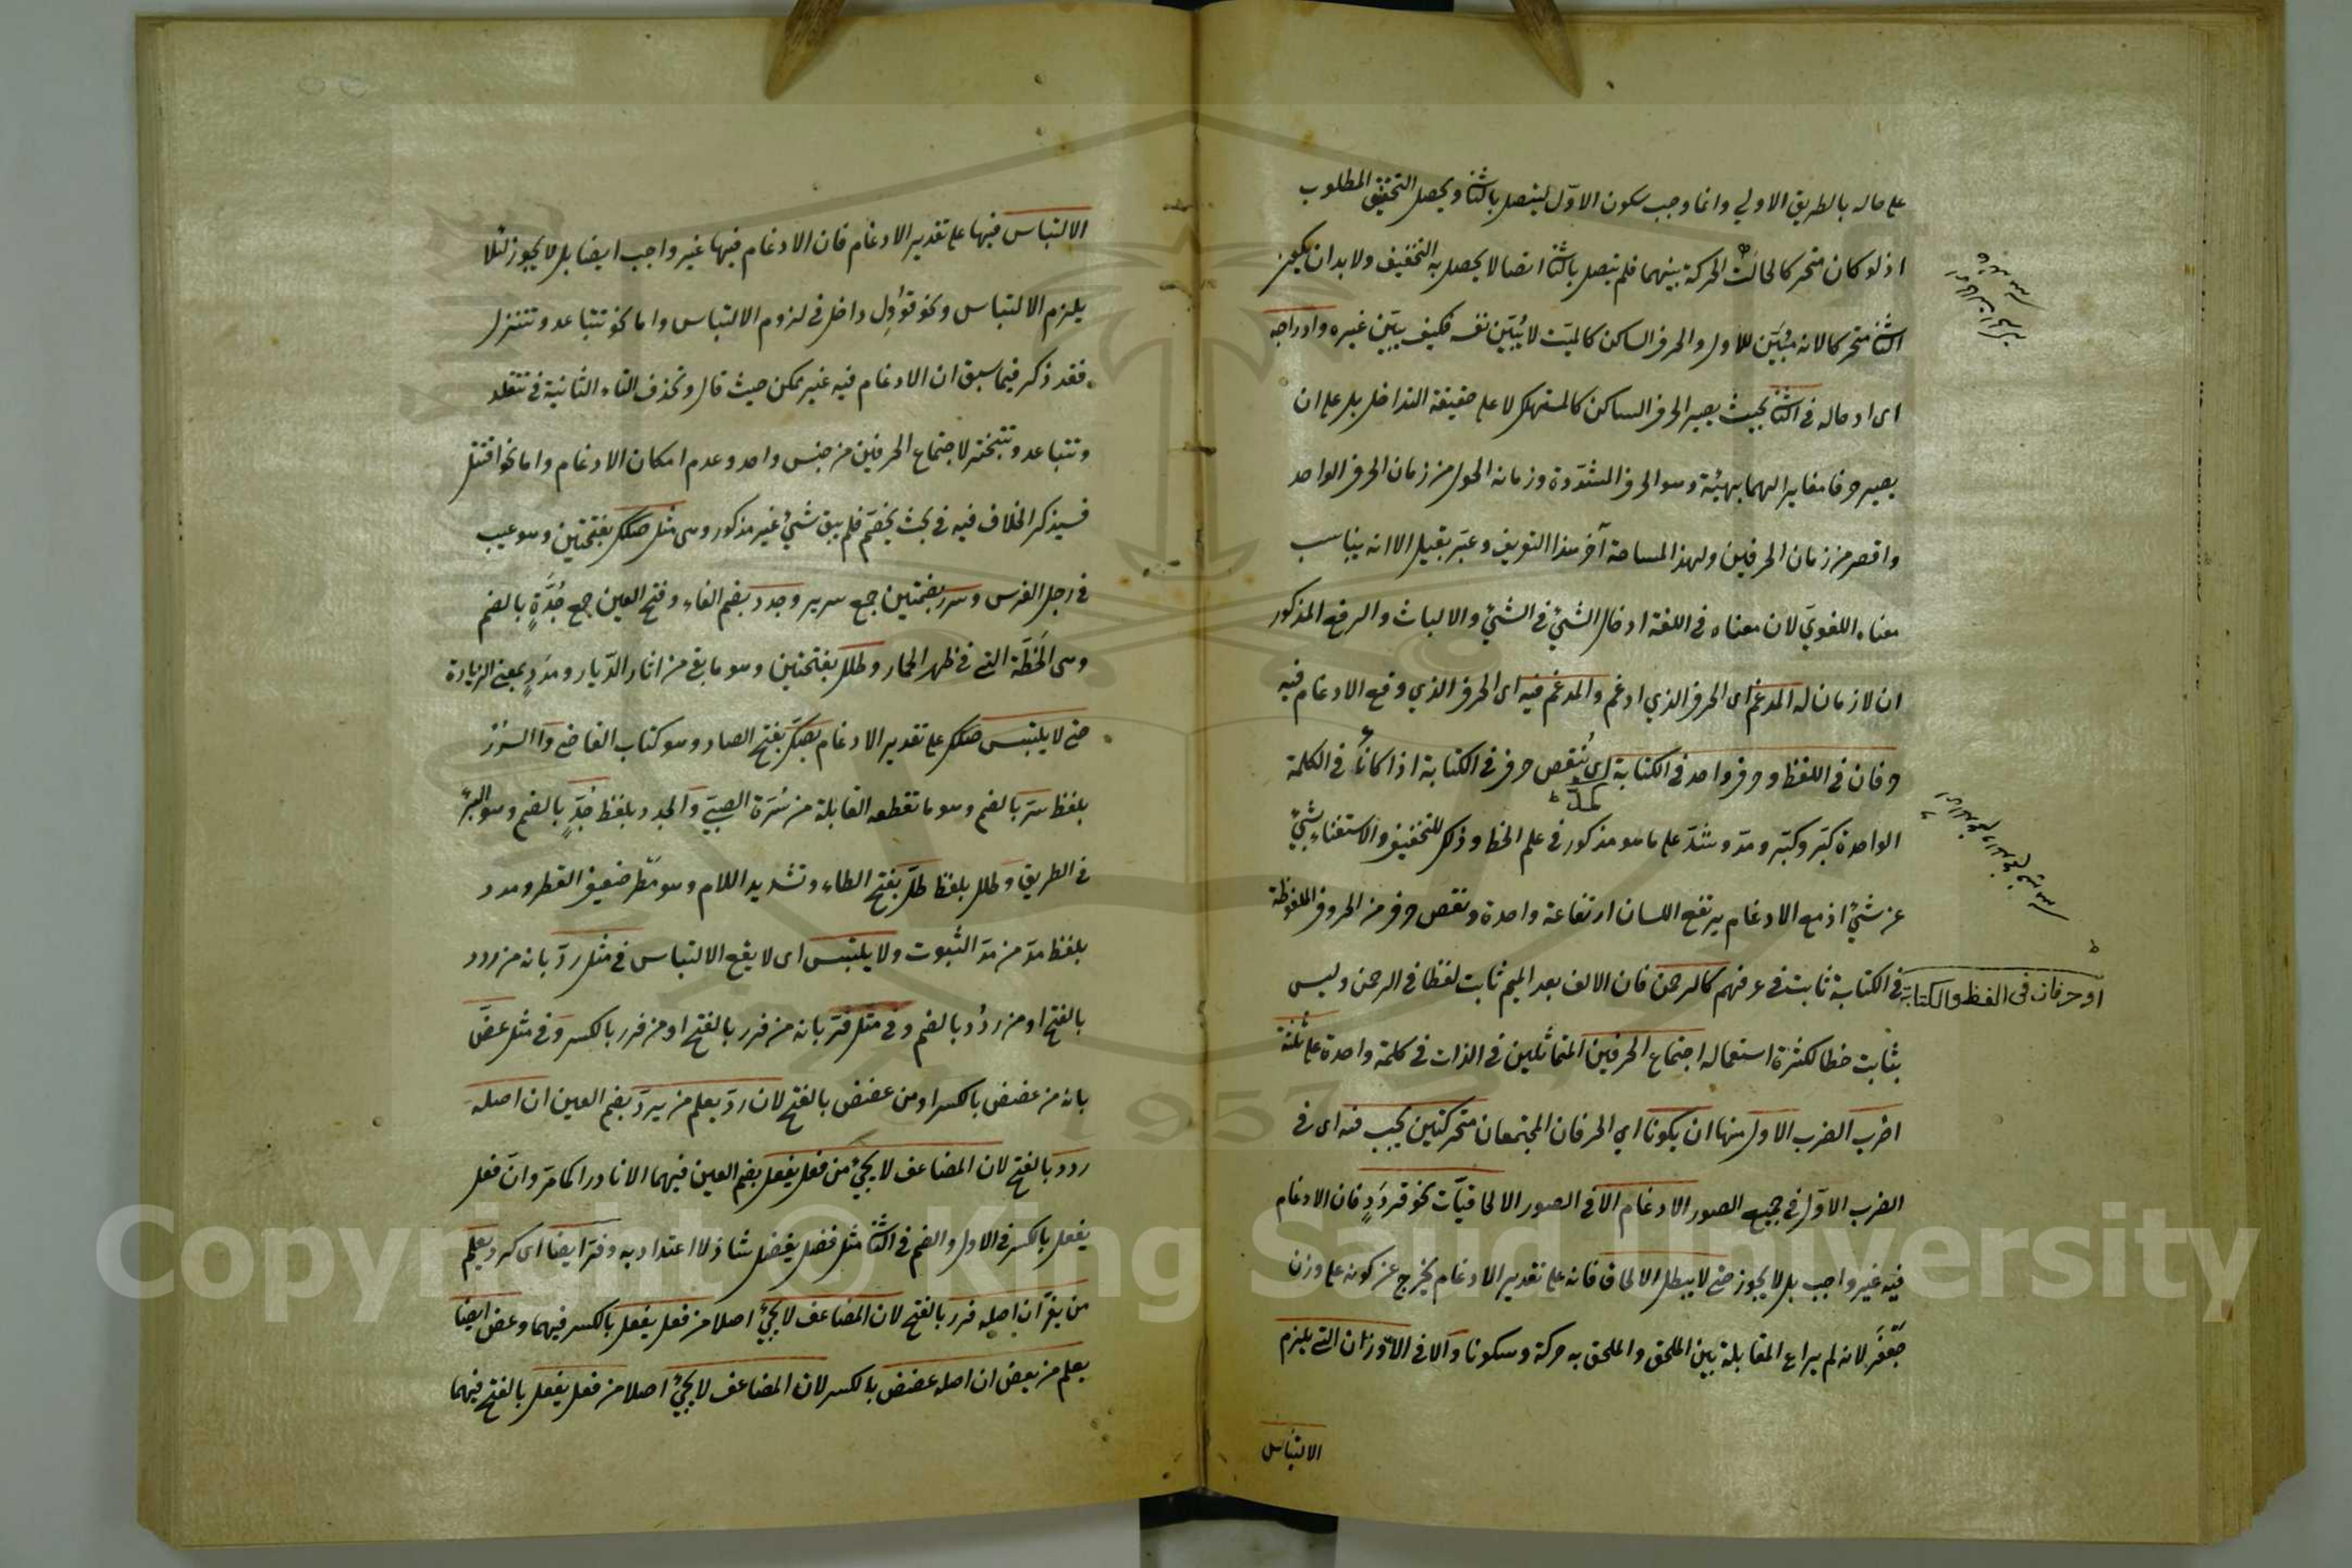 على حاله بالطريق الاولي وانما وجب سكون الاوّل ليتصل بالثا ويحصل التخفيف المطلوب
اذ لو كان متحركا لحالت الحركة بينهما فلم يتصل بالثا اتصالا يحصل به التخفيف ولا بد ان يكون
الثا متحركا لانه مُبَيِّن للاول والحرف الساكن كالميّت لا يُبَيِّن نفسه فكيف يبيّن غيره وادراجه
اى ادخاله فى الثا بحيث يصير الحرف الساكن كالمستهلك لا على حقيقة التداخل بل على ان
يصير حرفا مغايرا لهما بهيئة وهو الحرف المشدّدة وزمانه اطول من زمان الحرف الواحد
واقصر من زمان الحرفين ولهذا المسامحة آخر هذا التعريف وعبّر بقيل الا انه يناسب
معناه اللغويّ لان معناه فى اللغة ادخال الشئ فى الشئ والالباث والرفع المذكور
ان لازمان له المدغم اى الحرف الذي ادغم والمدغم فيه اى الحرف الذي وقع الادغام فيه
حرفان فى اللفظ وحرف واحد فى الكتابة اى يُنقص حرف فى الكتابة اذا كانا فى الكلمة
الواحدة ومدّ وشدّ على ما هو مذكور فى علم الخط وذلك للتخفيف والاستغناء بشئ
عن شئ اذ مع الادغام يرتفع اللسان ارتفاعة واحدة ونقص حرف من الحروف الملفوظة
او حرفان فى اللفظ والكتابة
فى الكتابة ثابت فى عرفهم كالرحمن فان الالف بعد الميم ثابت لفظا فى الرحمن وليس
بثابت خطا لكثرة استعماله اجتماع الحرفين المتماثلين فى الذات فى كلمة واحدة على ثلثة
اضرب الضرب الاول منها ان يكونا اى الحرفان المجتمعان متحركتين يجب فيه اى فى
الضرب الاوّل فى جميع الصور الادغام الا فى الصور الالحاقيّات نحو قردَدٍ فان الادغام
فيه غير واجب بل لا يجوز حتى لا يبطل الالحاق فانه على تقدير الادغام يخرج عن كونه على وزن
جَعْفَر لانه لم يراع المقابلة بين الملحق والملحق به حركة وسكونا والا فى الاوزان التى يلزم
الالتباس
الالتباس فيها على تقدير الادغام فان الادغام فيها غير واجب ايضا بل لا يجوز لئلا
يلزم الالتباس ونحو قوول داخل فى لزوم الالتباس واما نحو تتباعد وتتنزل
فقد ذكر فيما سبق ان الادغام فيه غير ممكن حيث قال وتحذف التاء الثانية فى تتقلد
وتتباعد وتتبختر لاجتماع الحرفين من جنس واحد وعدم امكان الادغام واما نحو اقتتل
فسيذكر الخلاف فيه فى بحث يخصّم فلم يبق شئ غير مذكور وهى مثل صكك بفتحتين وهو عيب
فى رجل الفرس وسرر بضمتين جمع سرير وجدد بضم الفاء وفتح العين جمع جُدَّةٍ بالضم
وهى الخطّة التى فى ظهر الحمار وطلل بفتحتين وهو ما بقى من اثار الدّيار ومدَدٍ بمعنى الزيادة
حتى لا يلتبس صكك على تقدير الادغام بصكّ بفتح الصاد وهو كتاب القاضى والسُرُر
بلفظ سرّ بالضم وهو ما تقطعه القابلة من سُرّة الصبيّ والجدد بلفظ جُدٍّ بالضم وهو البئر
فى الطريق وطلل بلفظ طلّ بفتح الطاء وتشديد اللام وهو مطر ضعيف القطر ومدد
بلفظ مدّ من مدّ الثبوت ولا يلتبس اى لا يقع الالتباس فى مثل ردّ بانه من ردد
بالفتح او من ردُد بالضم وفى مثل فرّ بانه من فرر بالفتح او من فرر بالكسر وفى مثل عضّ
بانه من عضض بالكسر او من عضض بالفتح لان ردّ يعلم من يردّ بضم العين ان اصله
ردد بالفتح لان المضاعف لا يجئ من فعل يفعل بضم العين فيهما الا نادرا كما مرّ وانّ فعل
يفعل بالكسر فى الاول والضم فى الثا مثل فضل يفضل شاذ لا اعتداد به وفرّ ايضا اى كرد يعلم
من يفرّ ان اصله فرر بالفتح لان المضاعف لا يجئ اصلا من فعل يفعل بالكسر فيهما وعض ايضا
يعلم من يعض ان اصله عضض بالكسر لان المضاعف لا يجئ اصلا من فعل يفعل بالفتح فيهما
Copyright © King Saud University
1957